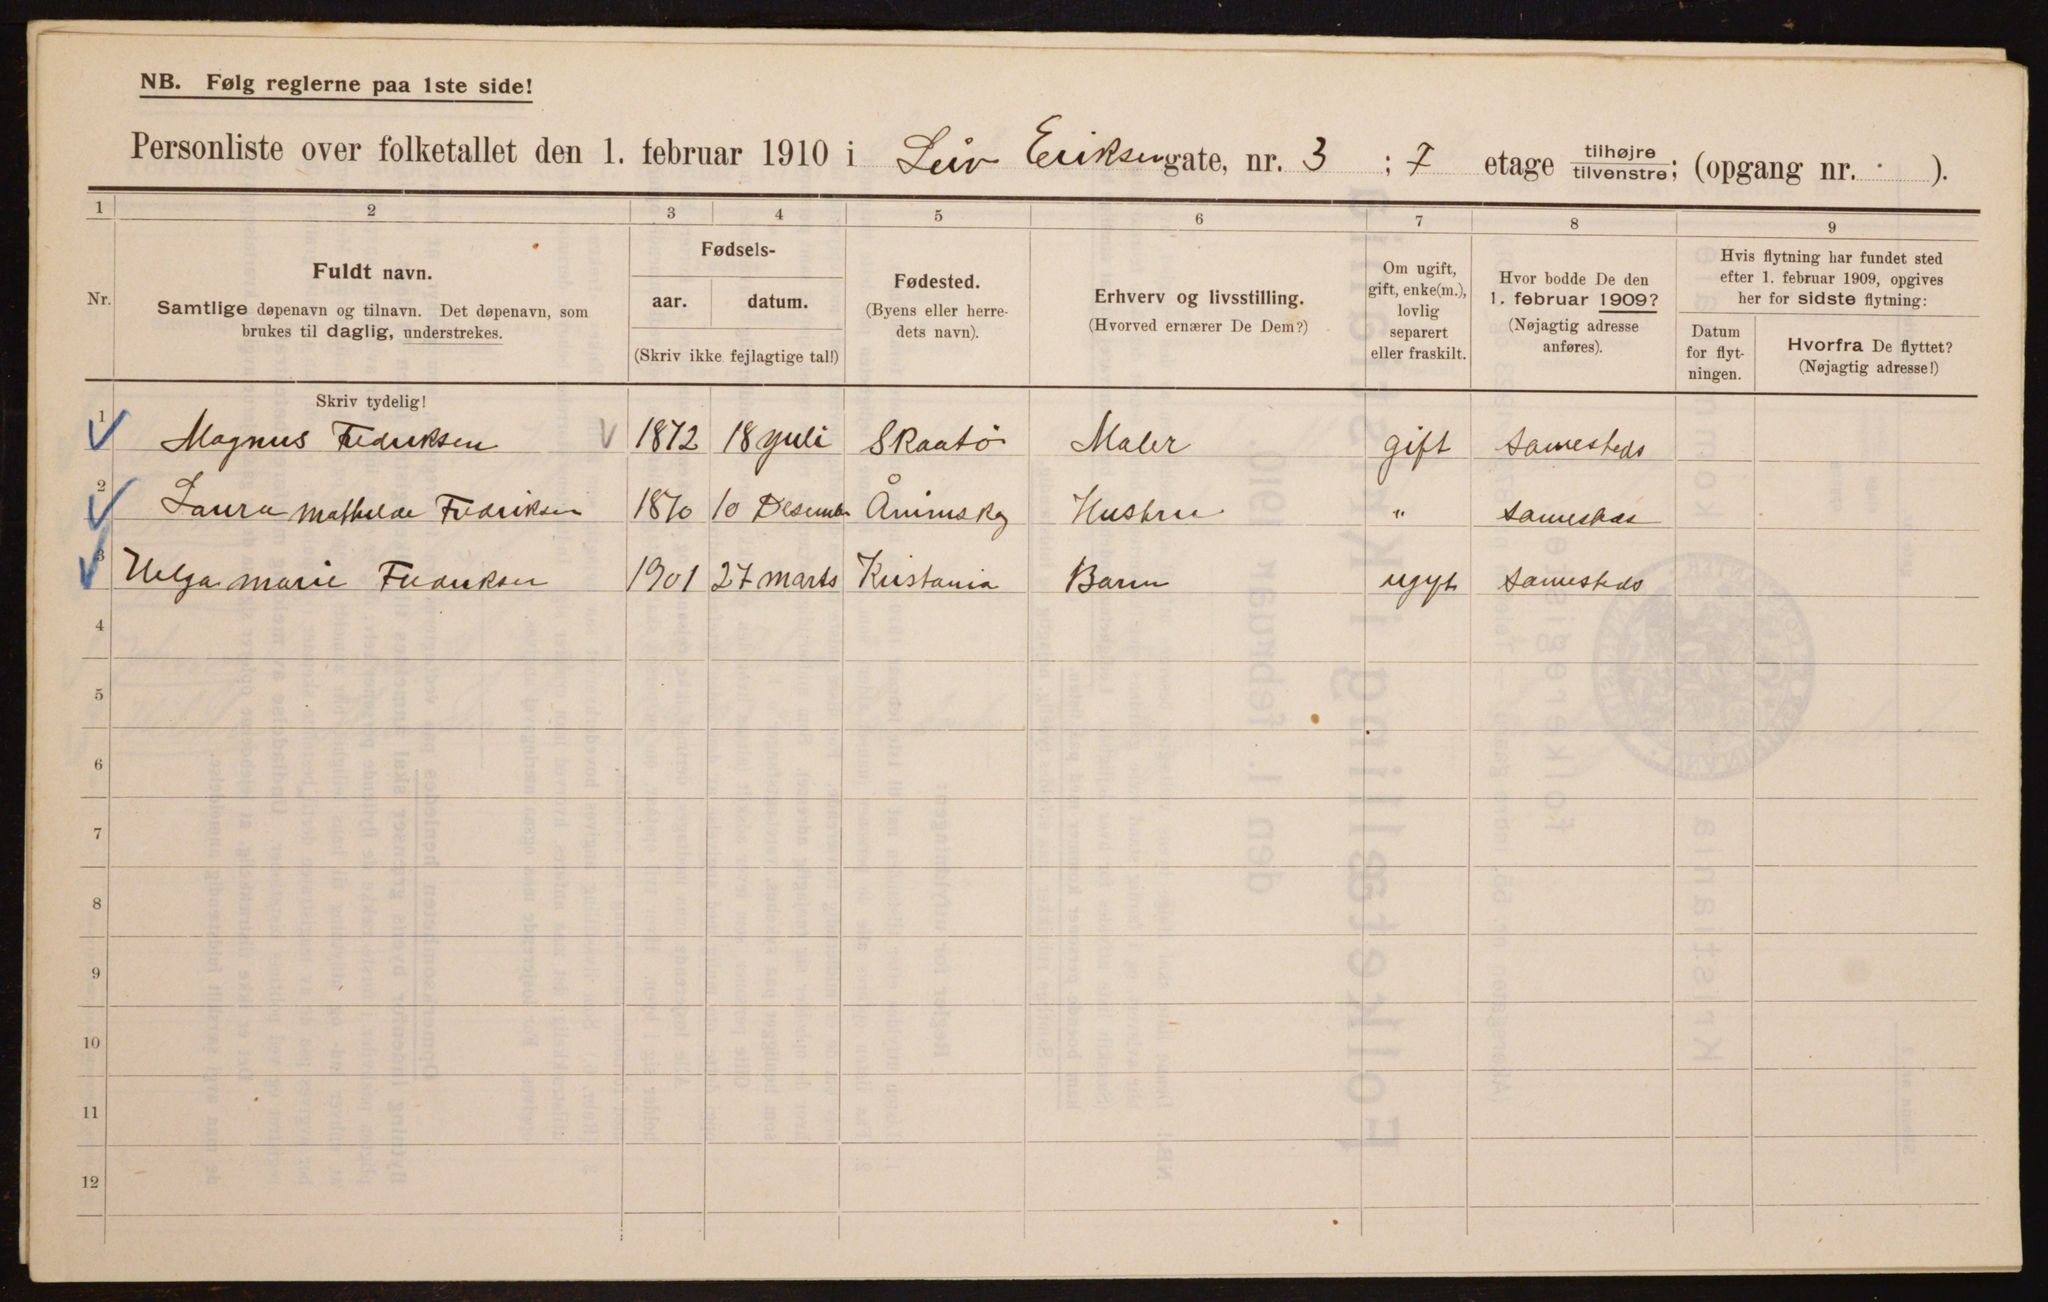 NB. Følg reglerne paa 1ste side!
Personliste over folketallet den 1. februar 1910 i Leiv Eriksengate, nr. 3 ; I etage tilhøjre tilvenstre; (opgang nr. ).
1 2 3 4 5 6 7 8 9
Nr.
Fuldt navn.
Samtlige døpenavn og tilnavn. Det døpenavn, som
brukes til daglig, understrekes.
Fødsels-
aar. datum.
(Skriv ikke fejlagtige tal!)
Fødested.
(Byens eller herre-
dets navn).
Erhverv og livsstilling.
(Hvorved ernærer De Dem?)
Om ugift,
gift, enke(m.),
lovlig
separert
eller fraskilt.
Hvor bodde De den
1. februar 1909?
(Nøjagtig adresse
anføres).
Hvis flytning har fundet sted
efter 1. februar 1909, opgives
her for sidste flytning:
Datum
for flyt-
ningen.
Hvorfra De flyttet?
(Nøjagtig adresse!)
Skriv tydelig!
1 Magnus Fedriksen 1872 18 juli Skaatö Maler gift samesteds
2 Laura Mathilde Fedriksen 1870 10 Desember Hustru " samesteds
3 Helga Marie Fedriksen 1901 27 marts Kristania Barn ugyt samesteds
4
5
6
7
8
9
10
11
12